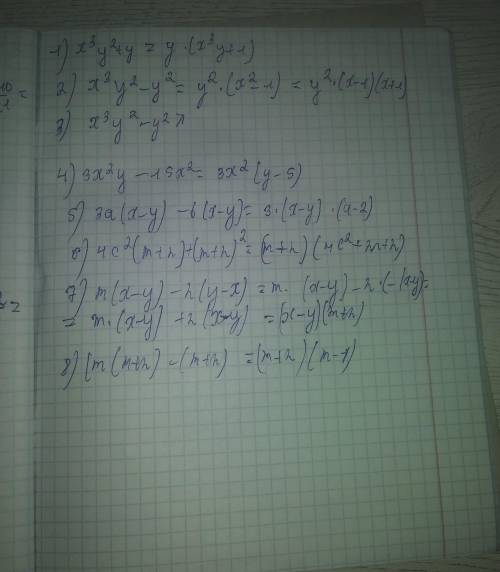 1) x³y²+y = y·(x³y+1)
2) x²y²-y² = y²·(x²-1) = y²·(x-1)(x+1)
3) x³y²-y²
4) 3x²y-15x² = 3x²(y-5)
5) 3a(x-y)-6(x-y) = 3·(x-y)·(a-2)
6) 4c²(m+n)+(m+n)² = (m+n)(4c²+m+n)
7) m(x-y)-n(y-x) = m·(x-y)-n·(-(x-y)=
= m·(x-y)+n(x-y) = (x-y)(m+n)
8) (m(m+n)-(m+n) = (m+n)(m-1)